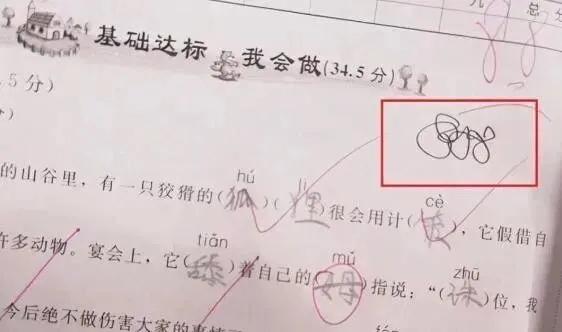 总分
基础达标 我会做(34.5分)
.5分)
hú lí cè
的山谷里，有一只狡猾的(狐)(狸)很会用计(策)，它假借自
tiǎn mǔ zhū
许多动物。宴会上，它(舔)着自己的(姆)指说：“(诛)位，我
今后绝不做伤害大家的事情